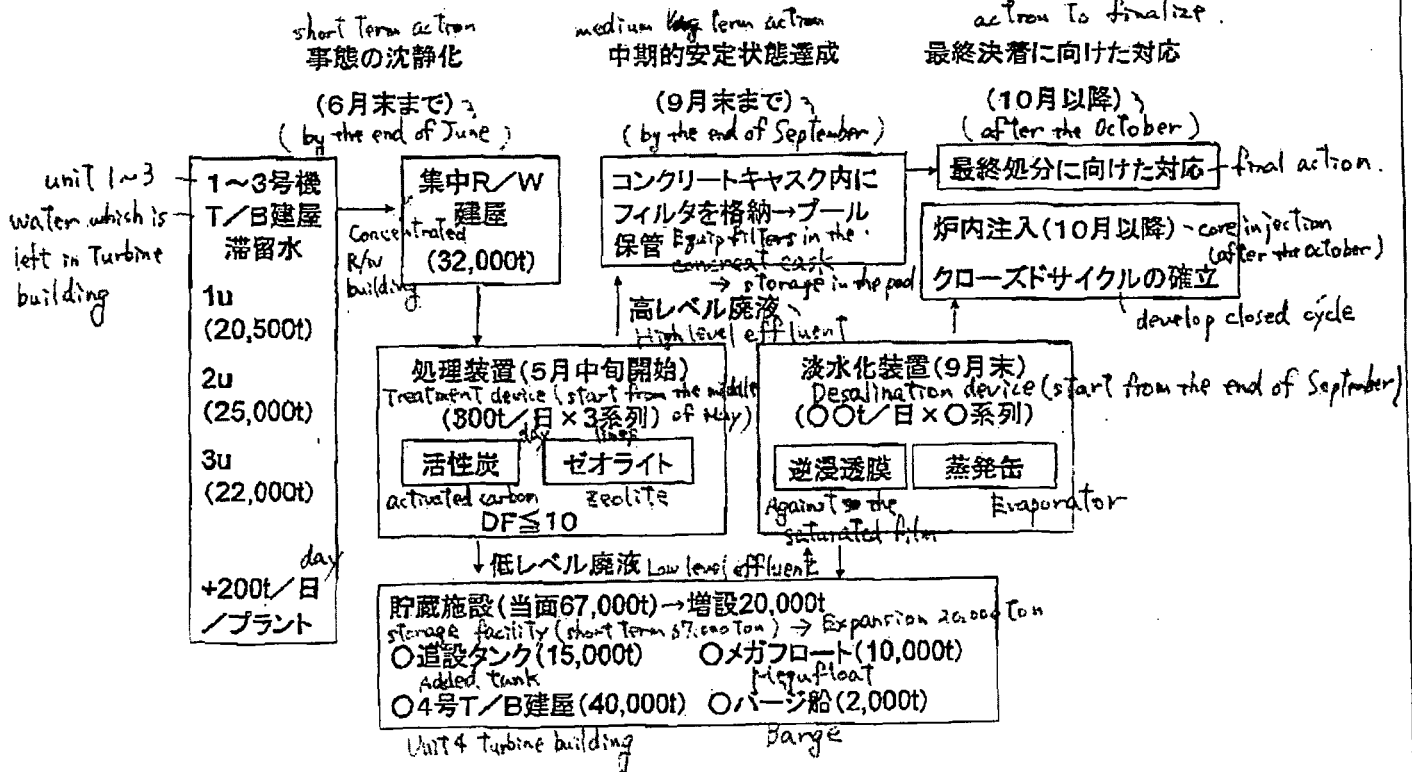 short term action
事態の沈静化
(6月末まで)
(by the end of June)
medium term action
中期的安定状態達成
(9月末まで)
(by the end of September)
action to finalize.
最終決着に向けた対応
(10月以降)
(after the October)
unit 1~3
water which is
left in Turbine
building
1~3号機
T/B建屋
滞留水
1u
(20,500t)
2u
(25,000t)
3u
(22,000t)
day
+200t/日
/プラント
集中R/W
建屋
(32,000t)
Concentrated
R/W
building
コンクリートキャスク内に
フィルタを格納→プール
保管
Equip filters in the
cask
→ storage in the
最終処分に向けた対応
final action.
炉内注入(10月以降)
core injection
(after the October)
クローズドサイクルの確立
develop closed cycle
高レベル廃液
High level effluent
処理装置(5月中旬開始)
Treatment device (start from the middle
of May)
(300t/日×3系列)
day
lines
活性炭
activated carbon
ゼオライト
zeolite
DF≦10
淡水化装置(9月末)
Desalination device (start from the end of September)
(○○t/日×○系列)
逆浸透膜
Against the
saturated film
蒸発缶
Evaporator
低レベル廃液
Low level effluent
貯蔵施設(当面67,000t)→増設20,000t
storage facility (short term 67,000 ton) → Expansion 20,000 ton
○道設タンク(15,000t)
Added tank
○メガフロート(10,000t)
Megafloat
○4号T/B建屋(40,000t)
Unit 4 turbine building
○バージ船(2,000t)
Barge